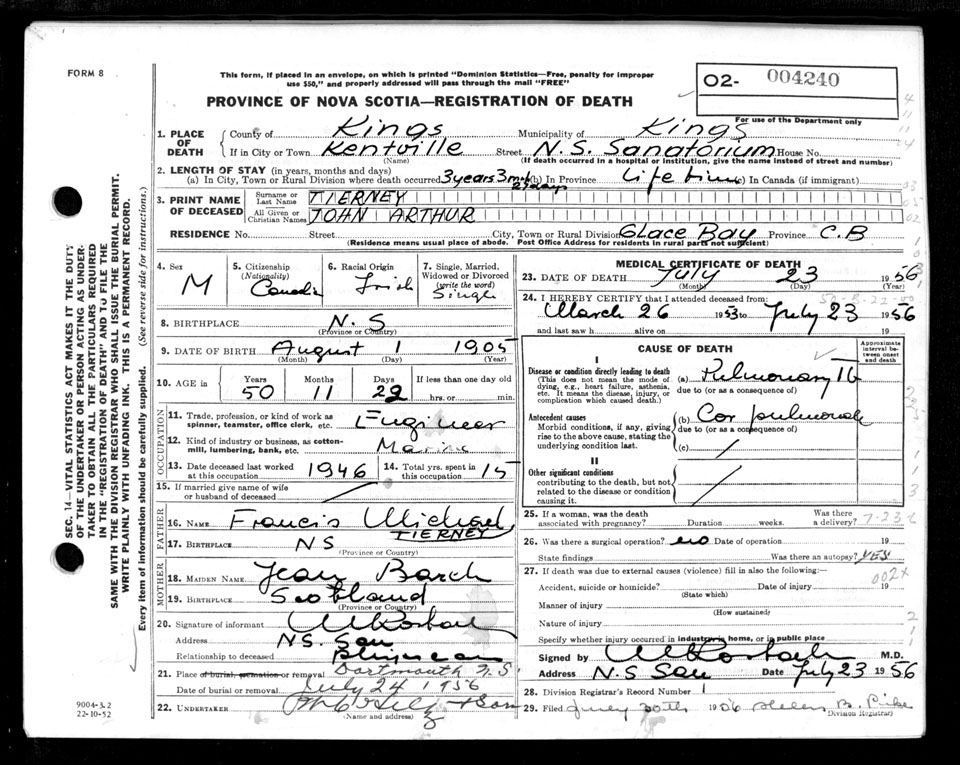 FORM 8
This form, if placed in an envelope, on which is printed "Dominion Statistics—Free, penalty for improper
use $50," and properly addressed will pass through the mail "FREE"
O2- 004240
For use of the Department only
PROVINCE OF NOVA SCOTIA—REGISTRATION OF DEATH
1. PLACE OF DEATH
County of Kings Municipality of Kings
If in City or Town Kentville Street N.S. Sanatorium House No.
(Name) (If death occurred in a hospital or institution, give the name instead of street and number)
2. LENGTH OF STAY (in years, months and days)
(a) In City, Town or Rural Division where death occurred 3 years 3 mos (b) In Province Life time (c) In Canada (if immigrant)
days
3. PRINT NAME OF DECEASED
Surname or Last Name TIERNEY
All Given or Christian Names JOHN ARTHUR
RESIDENCE No. Street City, Town or Rural Division GLACE BAY Province C.B
(Residence means usual place of abode. Post Office Address for residents in rural parts not sufficient)
4. Sex M
5. Citizenship (Nationality)
6. Racial Origin Irish
7. Single, Married, Widowed or Divorced (write the word) Single
8. BIRTHPLACE N.S
(Province or Country)
9. DATE OF BIRTH August 1 1905
(Month) (Day) (Year)
10. AGE in Years 50 Months 11 Days 22 If less than one day old hrs. or min.
OCCUPATION
11. Trade, profession, or kind of work as spinner, teamster, office clerk, etc. Engineer
12. Kind of industry or business, as cotton-mill, lumbering, bank, etc. Marine
13. Date deceased last worked at this occupation 1946
14. Total yrs. spent in 15
15. If married give name of wife or husband of deceased
FATHER
16. NAME Francis Michael
TIERNEY
17. BIRTHPLACE NS
(Province or Country)
MOTHER
18. MAIDEN NAME Jean
19. BIRTHPLACE Scotland
(Province or Country)
20. Signature of informant
Address N.S. San
Relationship to deceased Physician
21. Place of burial, cremation or removal Dartmouth N.S.
Date of burial or removal July 24 1956
22. UNDERTAKER
(Name and address)
MEDICAL CERTIFICATE OF DEATH
23. DATE OF DEATH July 23 1956
(Month) (Day) (Year)
24. I HEREBY CERTIFY that I attended deceased from:
March 26 1953 to July 23 1956
and last saw h alive on 19
CAUSE OF DEATH
Approximate interval between onset and death
I
Disease or condition directly leading to death
(This does not mean the mode of dying, e.g., heart failure, asthenia, etc. It means the disease, injury, or complication which caused death.)
(a) Pulmonary Tb
due to (or as a consequence of)
Antecedent causes
Morbid conditions, if any, giving rise to the above cause, stating the underlying condition last.
(b) Cor pulmonale
due to (or as a consequence of)
(c)
II
Other significant conditions
contributing to the death, but not related to the disease or condition causing it.
25. If a woman, was the death associated with pregnancy? Duration weeks. Was there a delivery?
26. Was there a surgical operation? no Date of operation 19
State findings Was there an autopsy? YES
27. If death was due to external causes (violence) fill in also the following:—
Accident, suicide or homicide? Date of injury 19
(State which)
Manner of injury
(How sustained)
Nature of injury
Specify whether injury occurred in industry, in home, or in public place
Signed by M.D.
Address N.S San Date July 23 1956
28. Division Registrar's Record Number 1
29. Filed 19 Helen B.
Division Registrar)
SEC. 14—VITAL STATISTICS ACT MAKES IT THE DUTY
OF THE UNDERTAKER OR PERSON ACTING AS UNDER-
TAKER TO OBTAIN ALL THE PARTICULARS REQUIRED
IN THE "REGISTRATION OF DEATH" AND TO FILE THE
SAME WITH THE DIVISION REGISTRAR WHO SHALL ISSUE THE BURIAL PERMIT.
WRITE PLAINLY WITH UNFADING INK. THIS IS A PERMANENT RECORD.
Every item of information should be carefully supplied. (See reverse side for instructions.)
9004-3.2
22-10-52